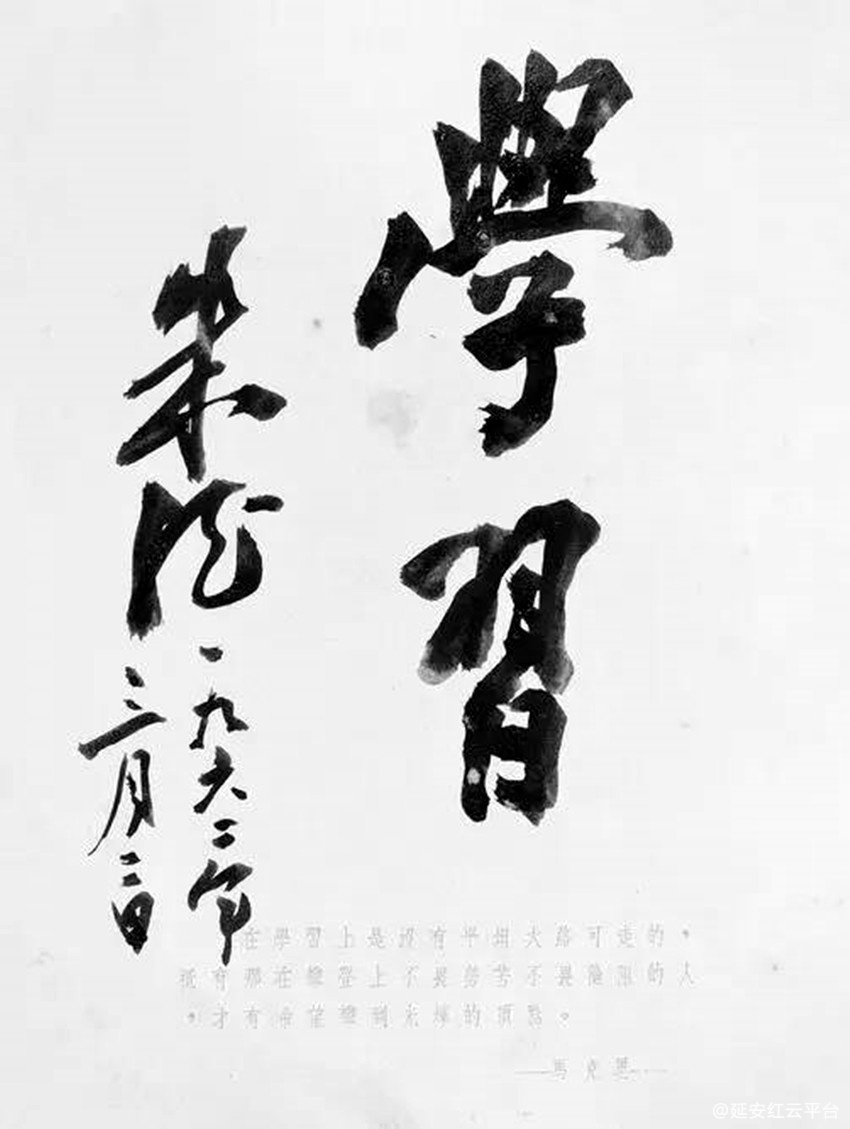 學習
朱德
一九六二年
三月二日
在學習上是沒有平坦大路可走的，
祇有那在攀登上不畏勞苦不畏險阻的人
，才有希望攀到光輝的頂點。
——馬克思——
@延安红云平台